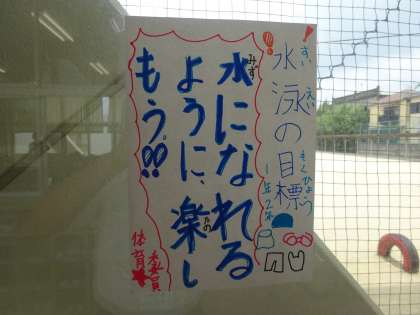 水泳の目標
すい えい もくひょう
1年2組
水になれる
みず
ように、楽し
たの
もう。!!
体育委員